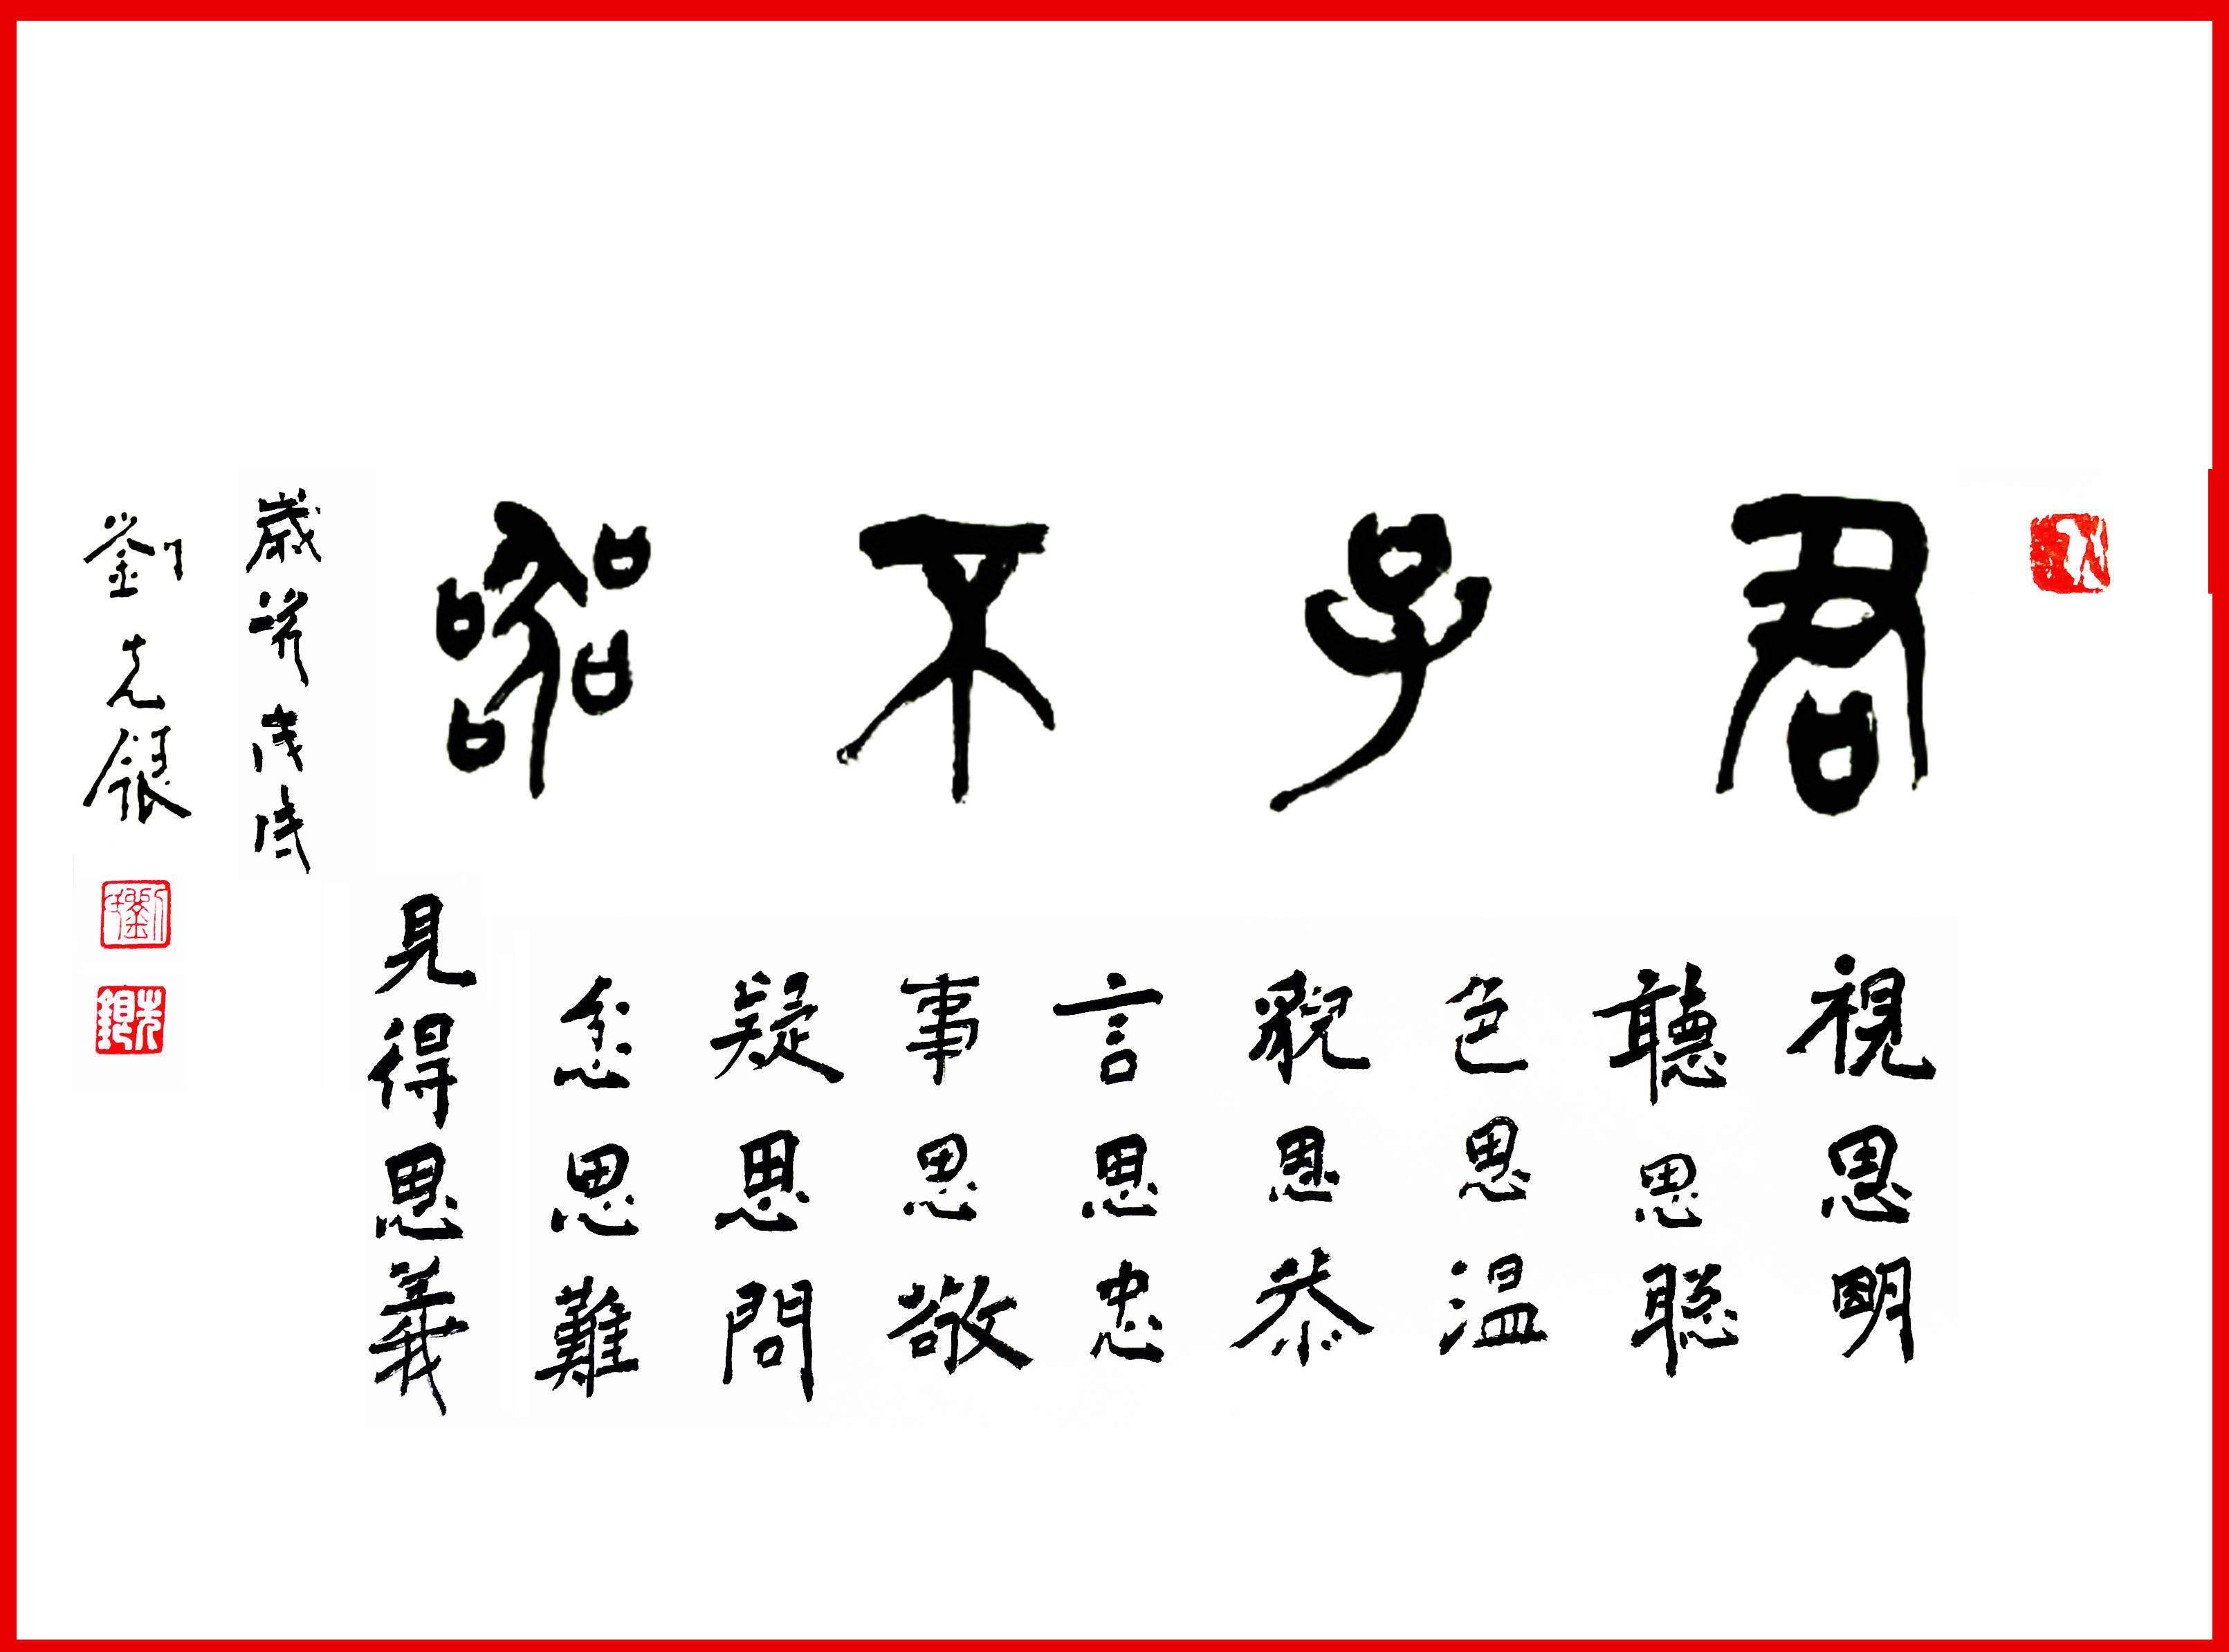 君子不器
視思明
聽思聰
色思温
貌思恭
言思忠
事思敬
疑思問
忿思難
見得思義
歲 戊戌
劉克銀
劉
克銀